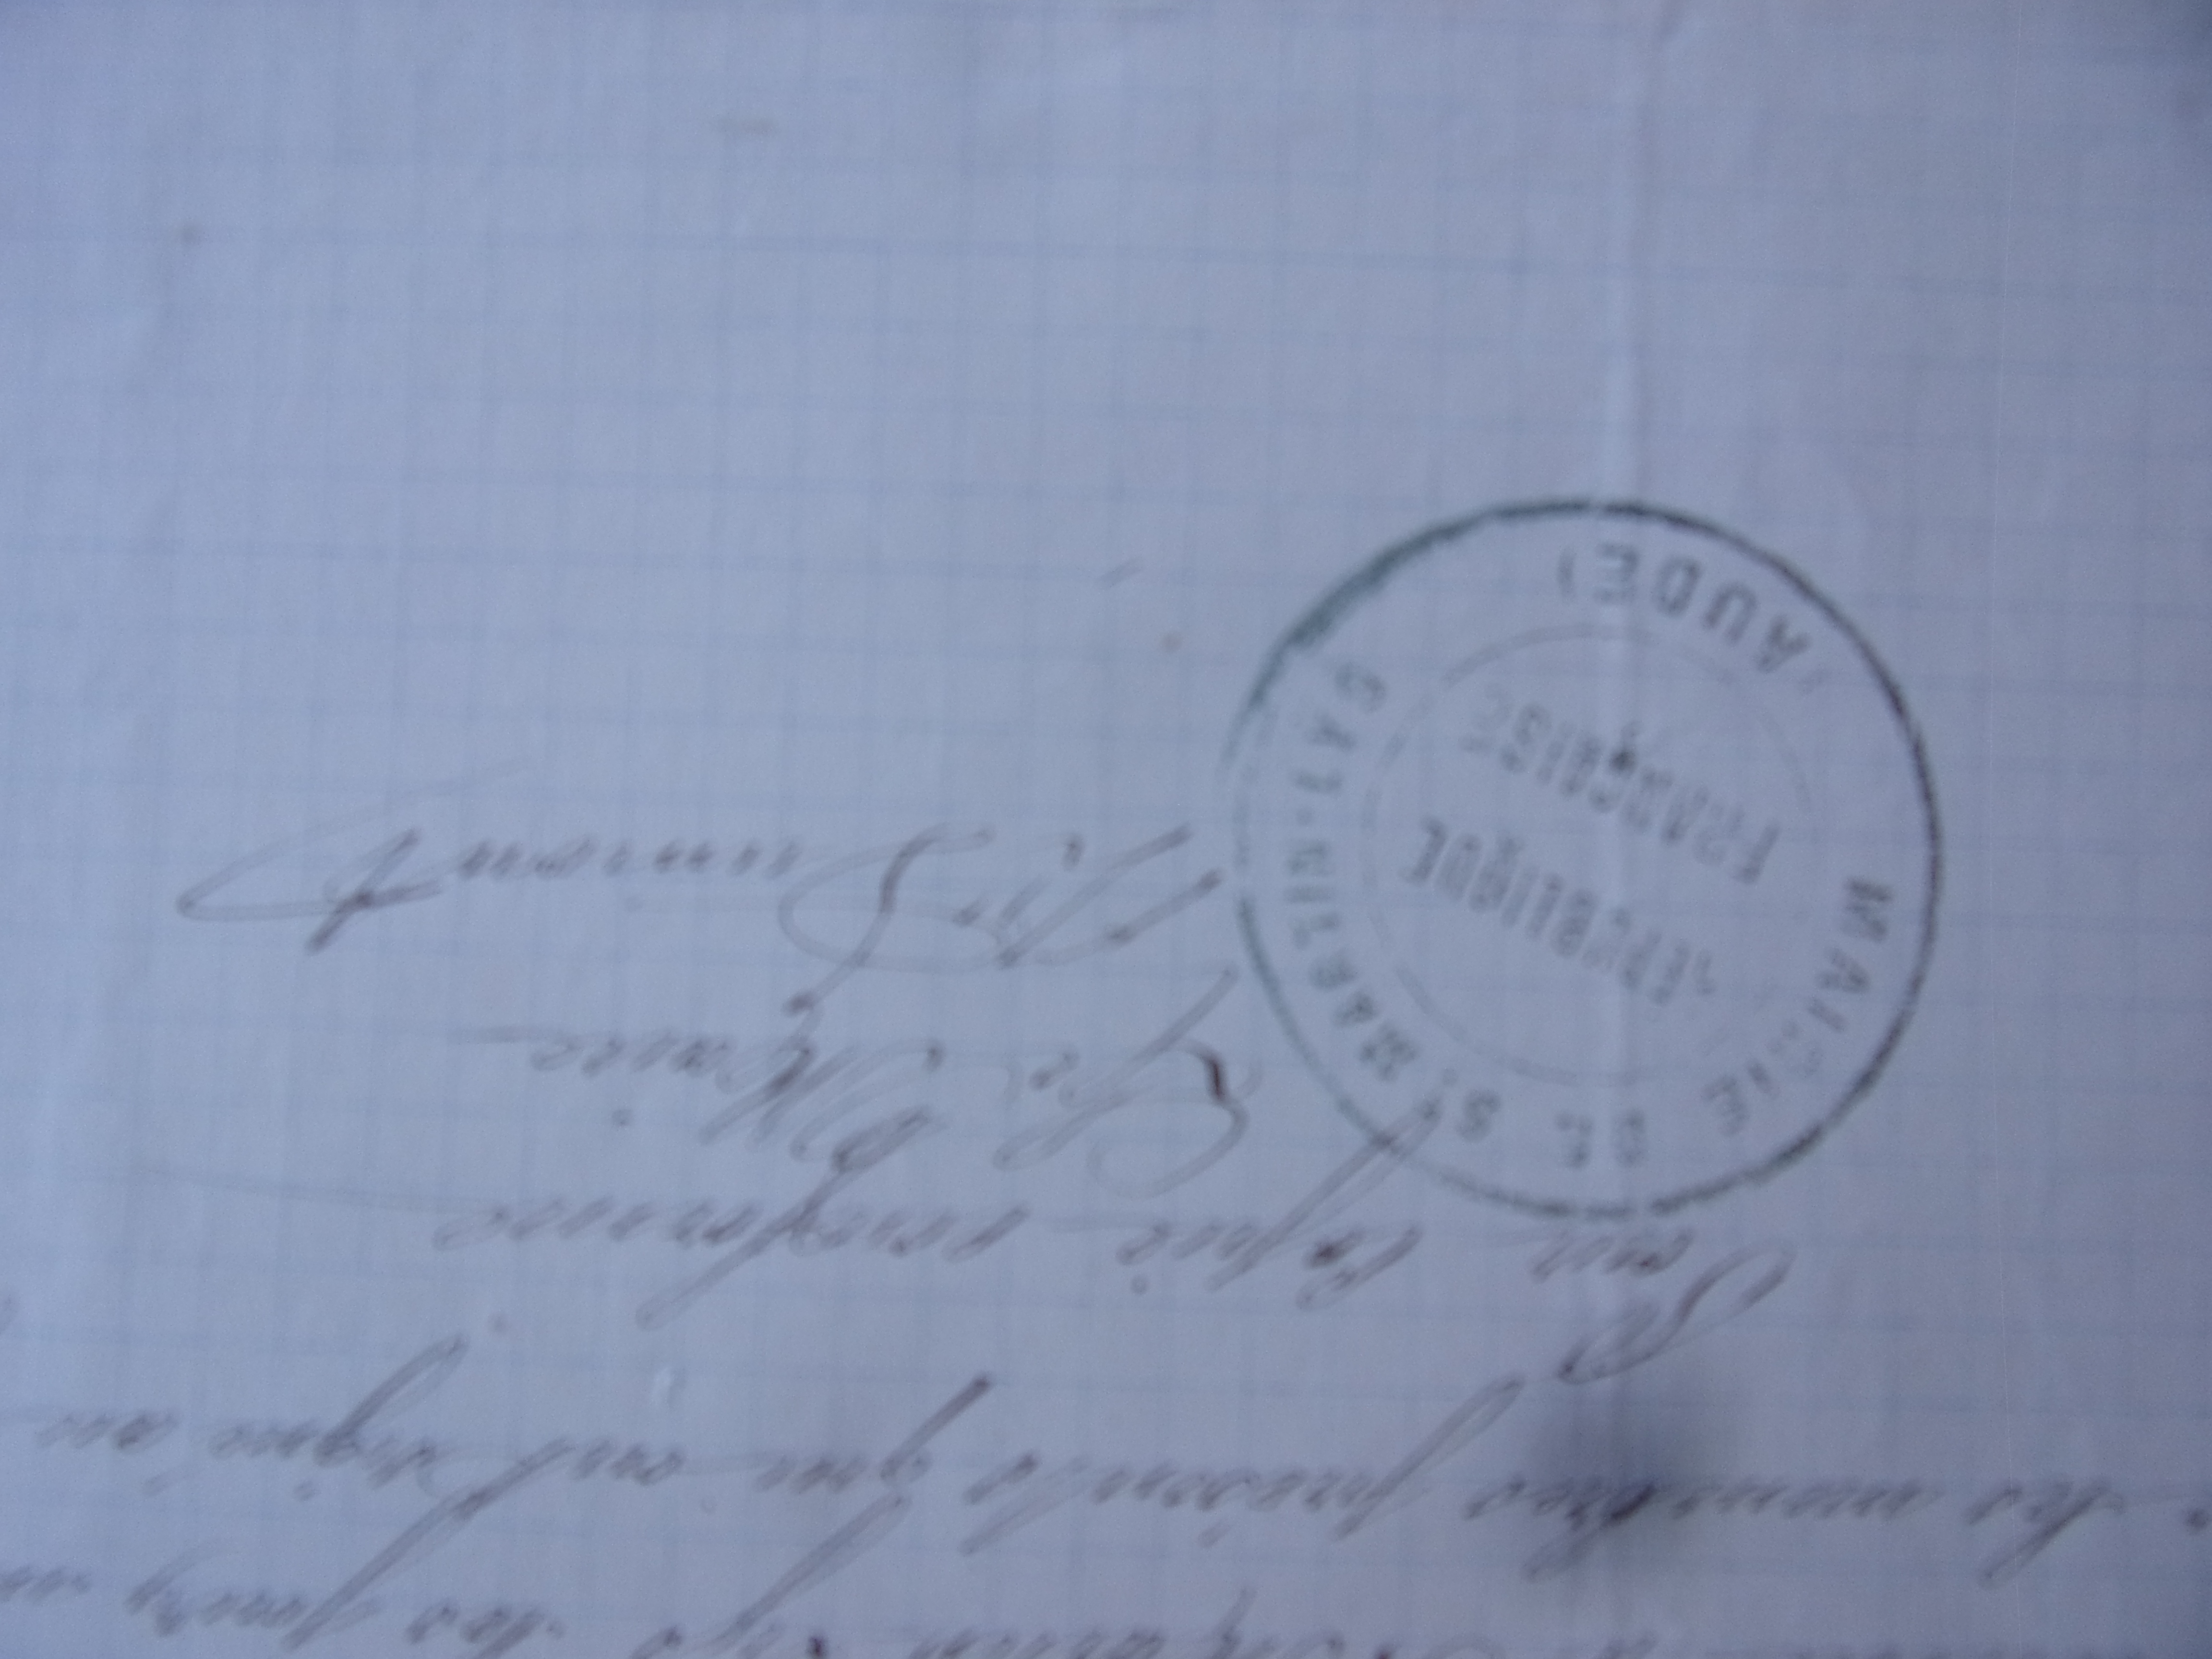 à St Martin Lys les jour
les membres présents qui ont signé au
Pour Copie conforme
Le Maire
Dumont
MAIRIE DE St MARTIN-LYS
RÉPUBLIQUE
FRANÇAISE
(AUDE)